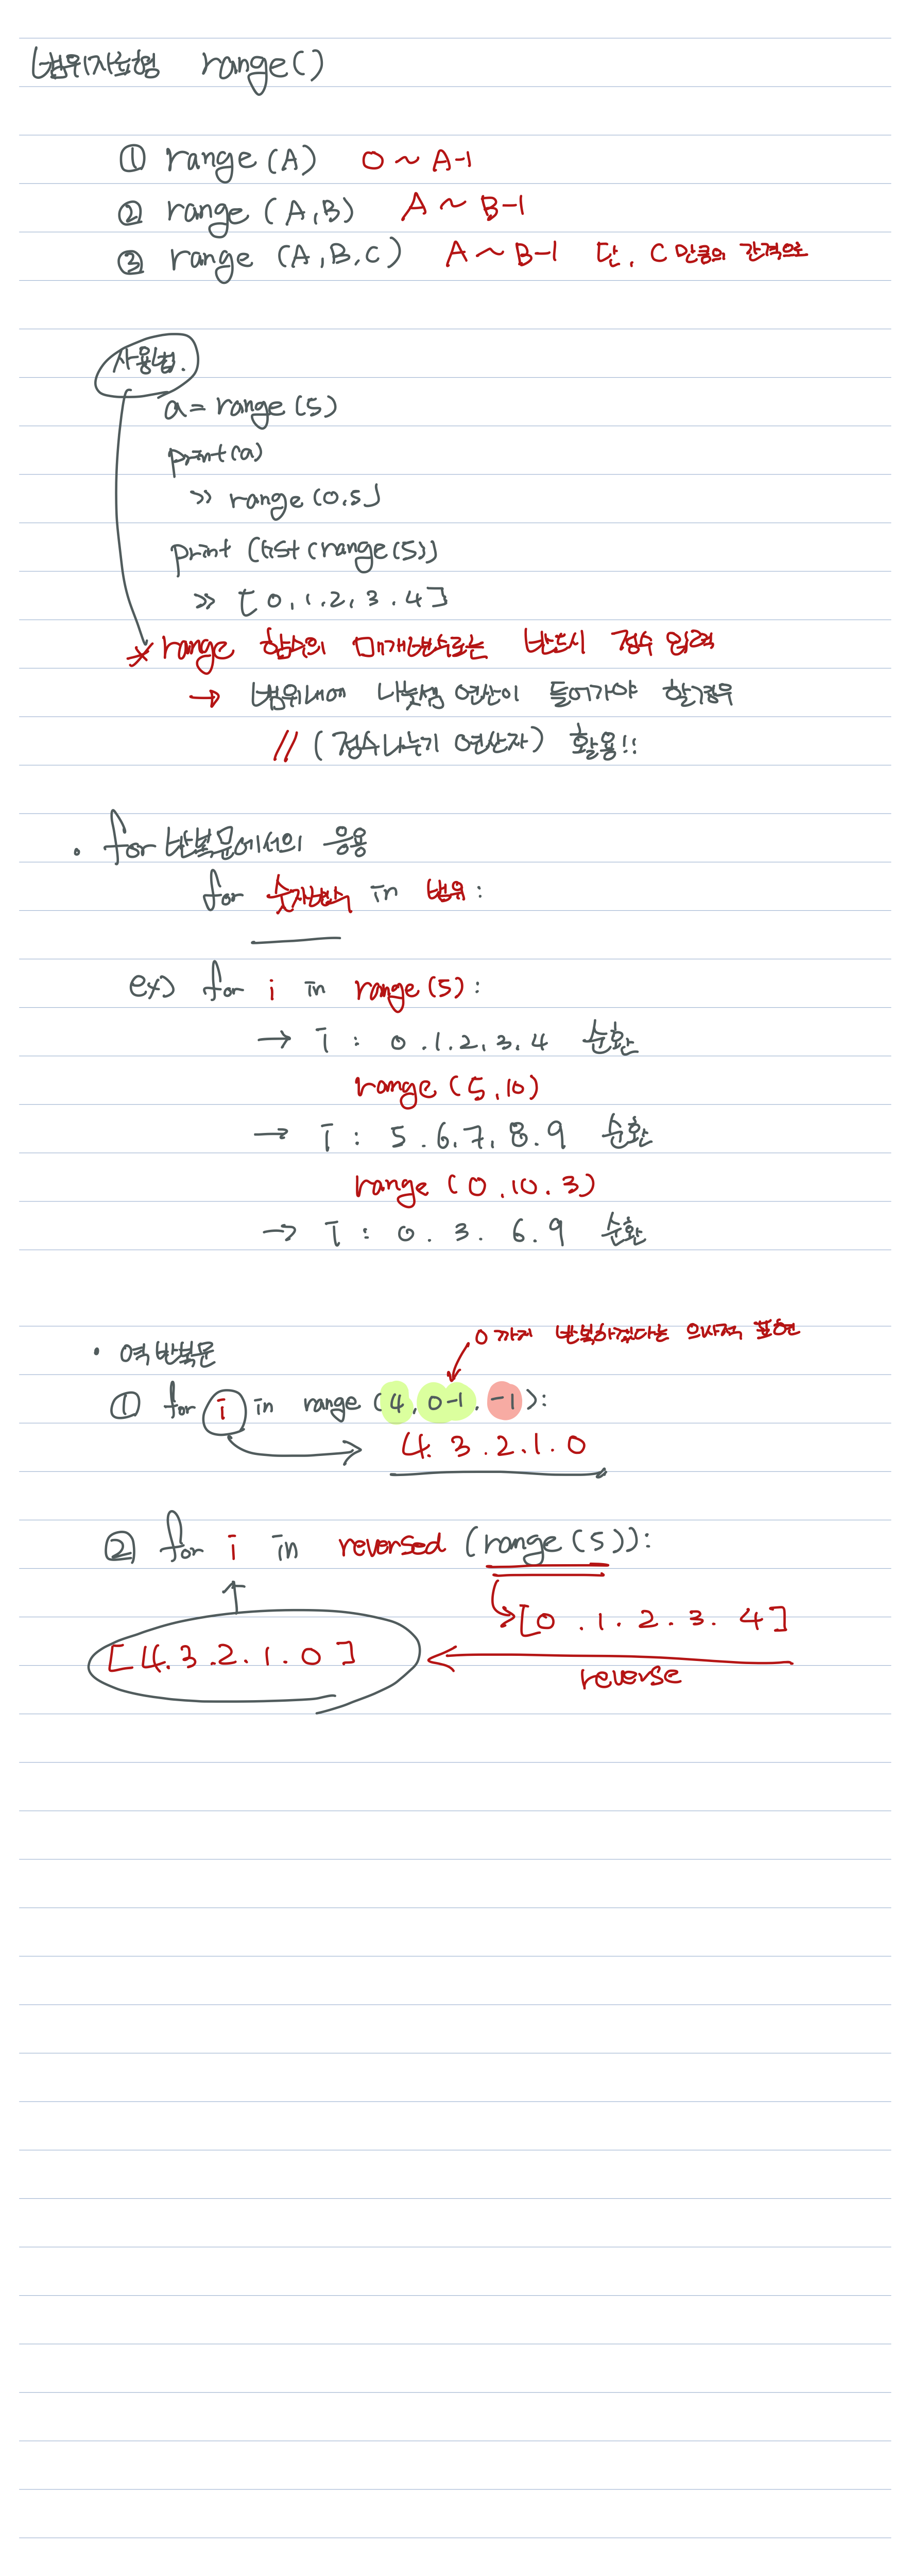 범위자료형 range()
① range(A) 0 ~ A-1
② range(A,B) A ~ B-1
③ range (A,B,C) A ~ B-1 단, C 만큼의 간격으로
사용법.
a = range(5)
print(a)
>> range(0,5)
print (list(range(5))
>> [0,1,2,3,4]
* range 함수의 매개변수로는 반드시 정수 입력
→ 범위내에 나눗셈 연산이 들어가야 할 경우
// (정수나누기 연산자) 활용!!
· for 반복문에서의 응용
for 숫자변수 in 범위 :
ex) for i in range(5) :
→ i : 0,1,2,3,4 순환
range(5,10)
→ i : 5,6,7,8,9 순환
range(0,10,3)
→ i : 0,3,6,9 순환
0 까지 반복하겠다는 의사적 표현
· 역 반복문
① for i in range (4,0-1,-1):
4,3,2,1,0
② for i in reversed (range(5)):
[0,1,2,3,4]
[4,3,2,1,0]
reverse